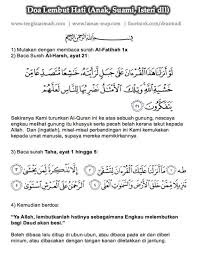 Doa Lembut Hati (Anak, Suami, Isteri dll)
1) Mulakan dengan membaca surah Al-Fathah 1x
2) Baca Surah Al-Harsh, ayat 21:
لَوْ أَنزَلْنَا هَٰذَا الْقُرْآنَ عَلَىٰ جَبَلٍ لَّرَأَيْتَهُ خَاشِعًا مُّتَصَدِّعًا مِّنْ
خَشْيَةِ اللَّهِ وَتِلْكَ الْأَمْثَالُ نَضْرِبُهَا لِلنَّاسِ لَعَلَّهُمْ
يَتَفَكَّرُونَ ٢١
Sekiranya Kami turunkan Al-Quran ini ke atas sebuah gunung, nescaya
engkau melihat gunung itu khusyuk serta pecah belah kerana takut kepada
Allah. Dan (ingatlah), misal-misal perbandingan ini Kami kemukakan
kepada umat manusia, supaya mereka memikirkannya.
3) Baca surah Taha, ayat 1 hingga 5:
4) Kemudian berdoa:
"Ya Allah, lembutkanlah hatinya sebagaimana Engkau melembutkan
bagi Daud akan besi."
Boleh dibaca lalu ditiup di ubun-ubun, atau dibaca pada air dan diberi
minum, atau dibacakan dengan tangan kanan diletakkan di jantung.